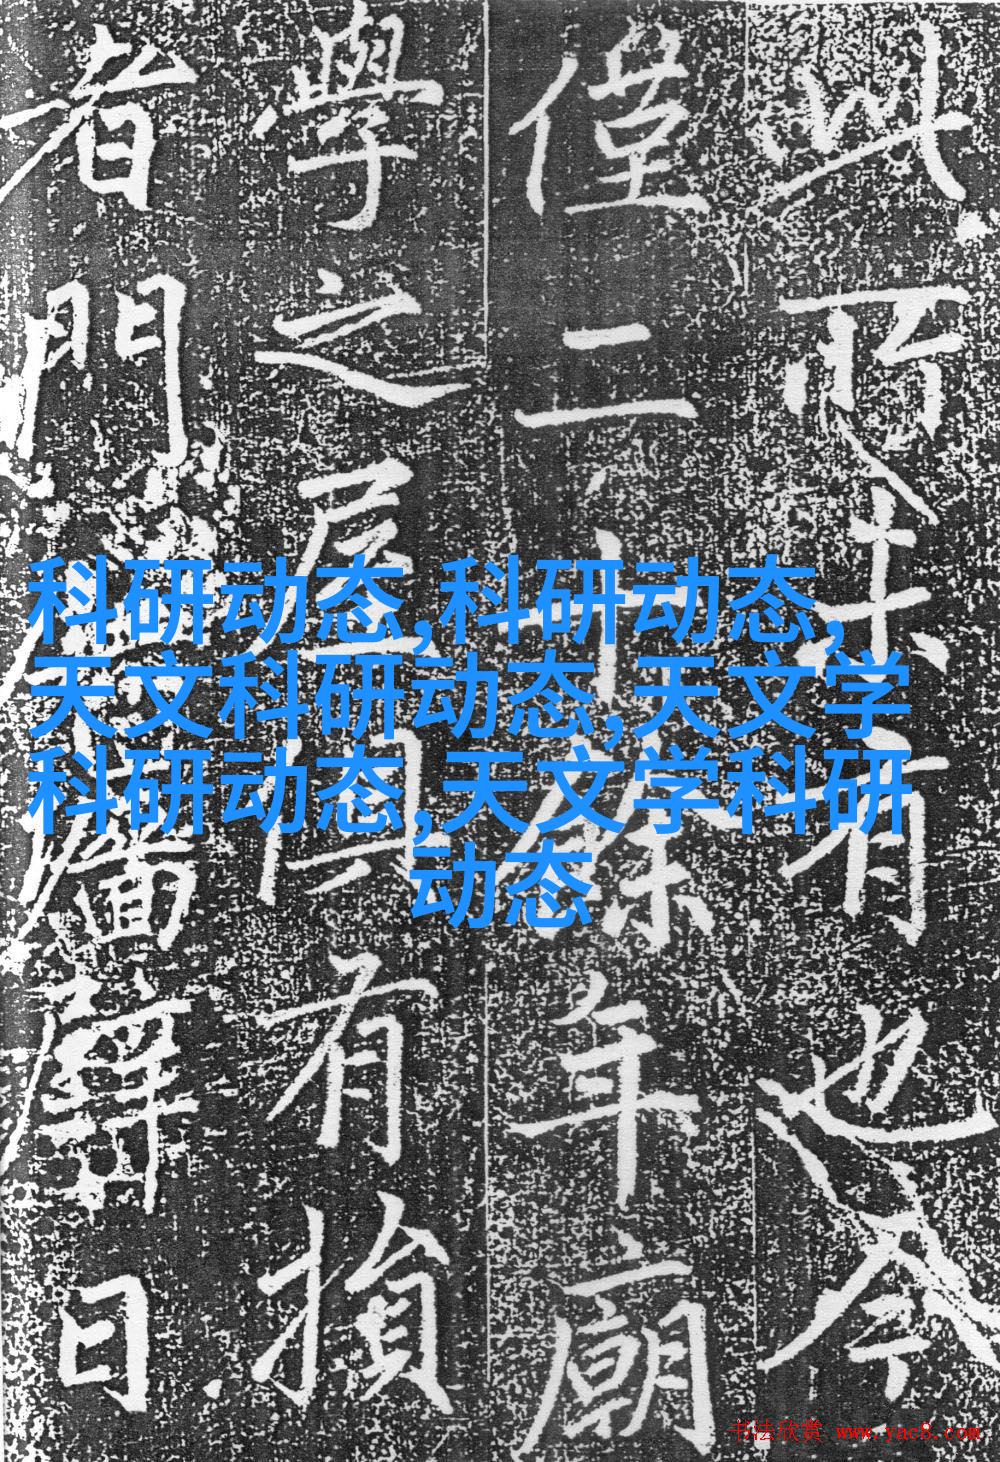 所未有也今
僅二十餘年廟
學之屋有損
者門日
科研动态,科研动态,
天文科研动态,天文学
科研动态,天文学科研
动态
书法欣赏 www.yac8.com